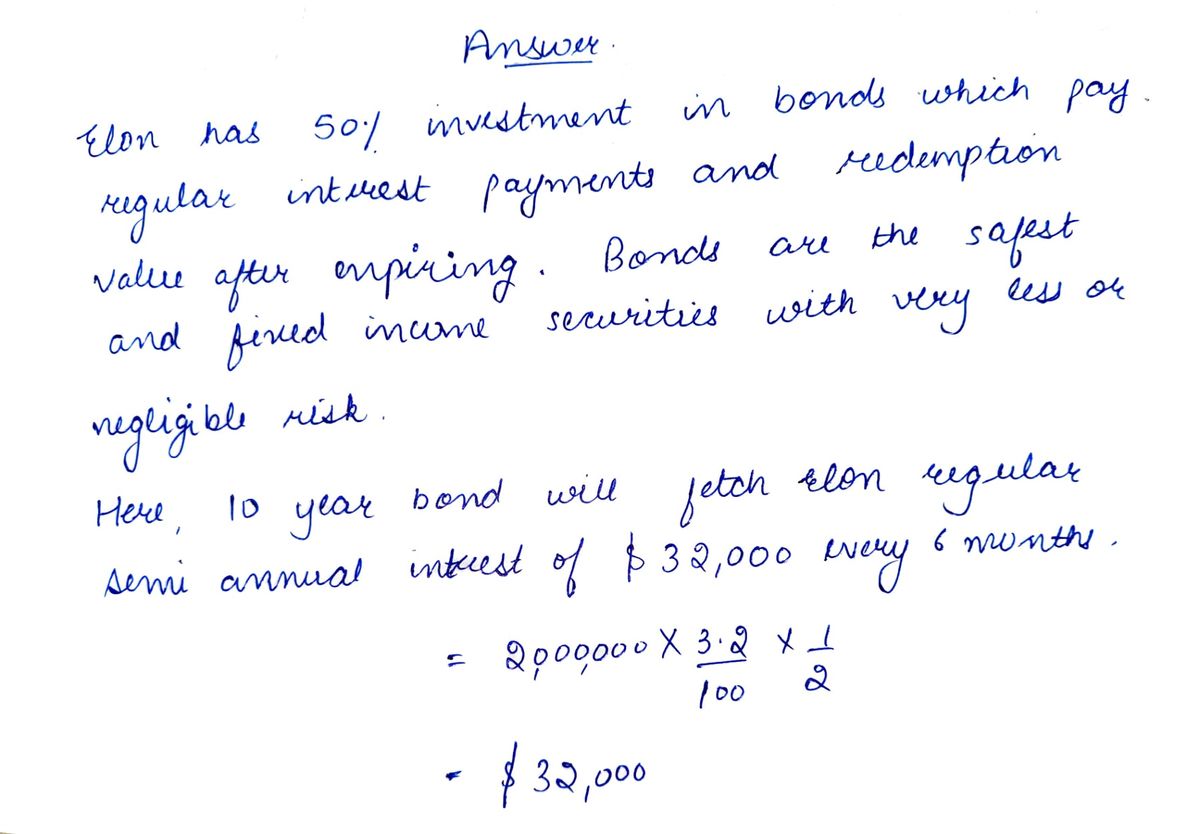 Answer.
Elon has 50% investment in bonds which pay.
regular interest payments and redemption
value after expiring. Bonds are the safest
and fixed income securities with very less or
negligible risk.
Here, 10 year bond will fetch Elon regular
semi annual interest of $32,000 every 6 months.
= 2,000,000 X 3.2/100 X 1/2
= $32,000